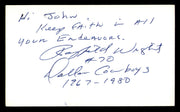 Hi John
Keep Faith in All
your Endeavors.
Rayfield Wright
#70
Dallas Cowboys
1967-1980